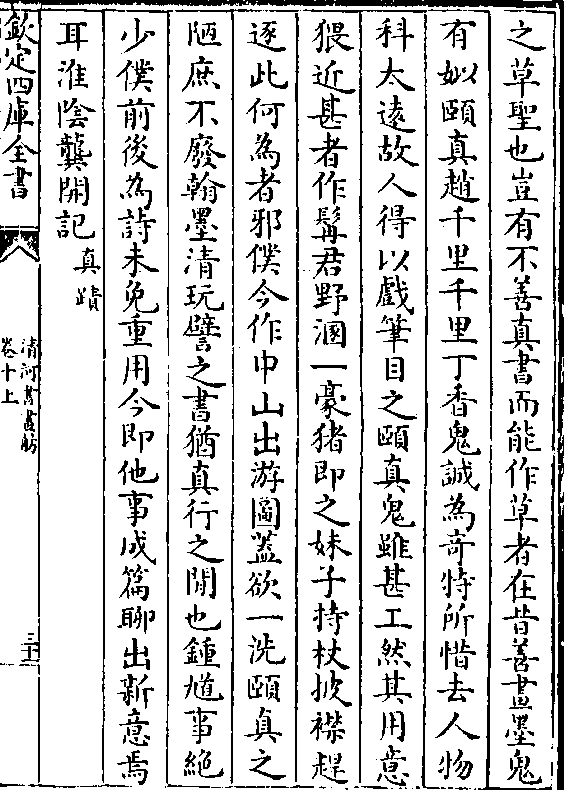 之草聖也豈有不善真書而能作草者在昔善畫墨鬼
有姒頤真趙千里千里丁香鬼誠為奇特所惜去人物
科太遠故人得以戲筆目之頤真鬼雖甚工然其用意
猥近甚者作髯君野溷一豪猪即之妹子持杖披襟趕
逐此何為者邪僕今作中山出游圖蓋欲一洗頤真之
陋庶不廢翰墨清玩譬之書猶真行之間也鍾馗事絶
少僕前後為詩未免重用今即他事成篇聊出新意焉
耳淮陰龔開記真蹟
欽定四庫全書
清河書畫舫
卷十上